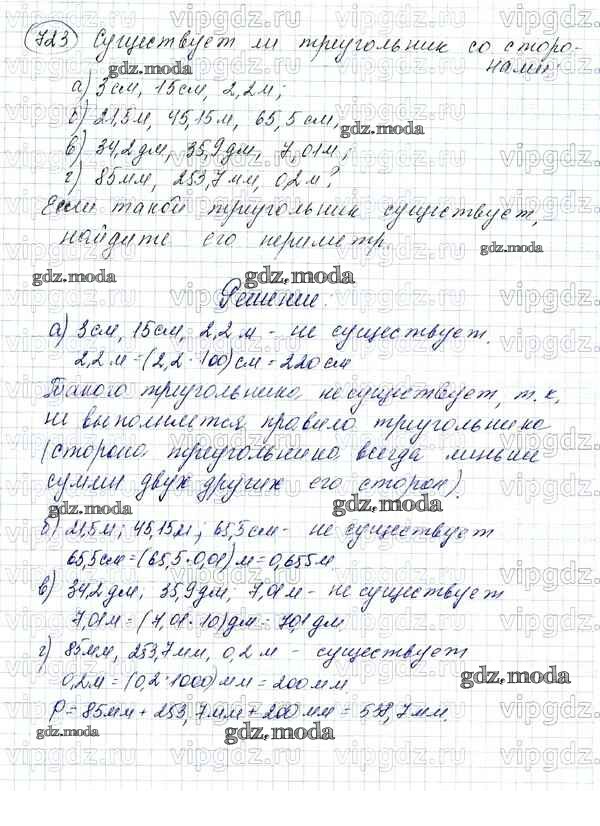 723 Существует ли треугольник со сторо-
нами:
а) 3 см, 15 см, 2,2 м;
б) 21,5 м, 45,15 м, 65,5 см;
в) 34,2 дм, 35,9 дм, 7,01 м;
г) 85 мм, 253,7 мм, 0,2 м?
Если такой треугольник существует,
найдите его периметр.
Решение:
а) 3 см, 15 см, 2,2 м - не существует.
2,2 м = (2,2 · 100) см = 220 см
Такого треугольника не существует, т.к.
не выполняется правило треугольника
(сторона треугольника всегда меньше
суммы двух других его сторон).
б) 21,5 м; 45,15 м; 65,5 см - не существует
65,5 см = (65,5 · 0,01) м = 0,655 м
в) 34,2 дм, 35,9 дм, 7,01 м - не существует
7,01 м = (7,01 · 10) дм = 70,1 дм
г) 85 мм, 253,7 мм, 0,2 м - существует
0,2 м = (0,2 · 1000) мм = 200 мм
P = 85 мм + 253,7 мм + 200 мм = 538,7 мм.
gdz.moda
vipgdz.ru